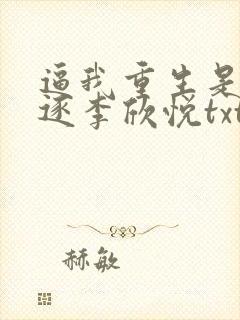 逼我重生是
逐李欣悦txt
赫敏